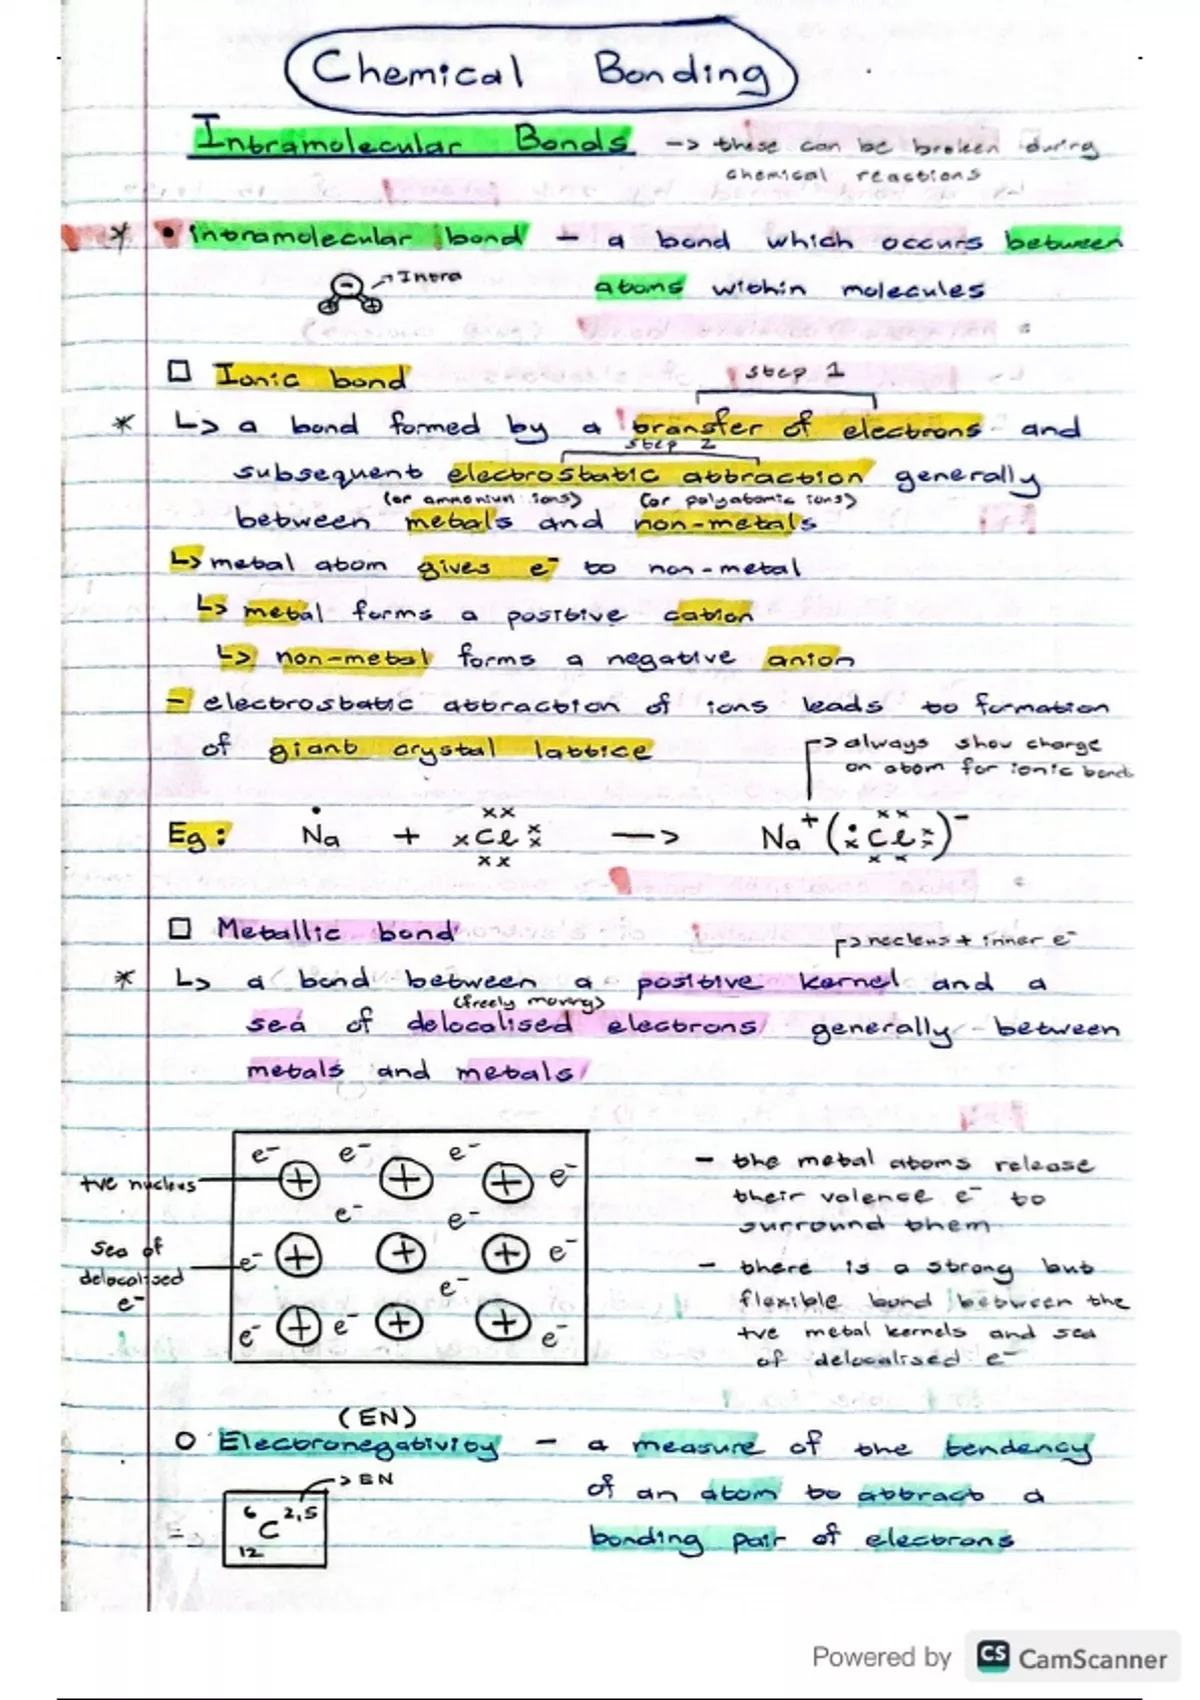 Chemical Bonding
Intramolecular Bonds -> these can be broken during
chemical reactions
* • intramolecular bond - a bond which occurs between
Intra
atoms within molecules
□ Ionic bond
step 1
* ↳ a bond formed by a transfer of electrons and
step 2
subsequent electrostatic attraction generally
(or ammonium ions) (or polyatomic ions)
between metals and non-metals
↳ metal atom gives e⁻ to non-metal
↳ metal forms a positive cation
↳ non-metal forms a negative anion
- electrostatic attraction of ions leads to formation
of giant crystal lattice
-> always show charge
on atom for ionic bond
Eg: Na + Cl -> Na⁺ (Cl)⁻
□ Metallic bond
-> necleus + inner e⁻
* ↳ a bond between a positive kernel and a
(freely moving)
sea of delocalised electrons generally between
metals and metals
e⁻ e⁻ e⁻
+ve nucleus + + + e⁻
e⁻ e⁻
sea of delocalised e⁻
e⁻ + + + e⁻
e⁻
e⁻ + e⁻ + + e⁻
- the metal atoms release
their valence e⁻ to
surround them
- there is a strong but
flexible bond between the
+ve metal kernels and sea
of delocalised e⁻
(EN)
○ Electronegativity - a measure of the tendency
of an atom to attract a
bonding pair of electrons
-> EN
6 C 2,5
12
Powered by CS CamScanner